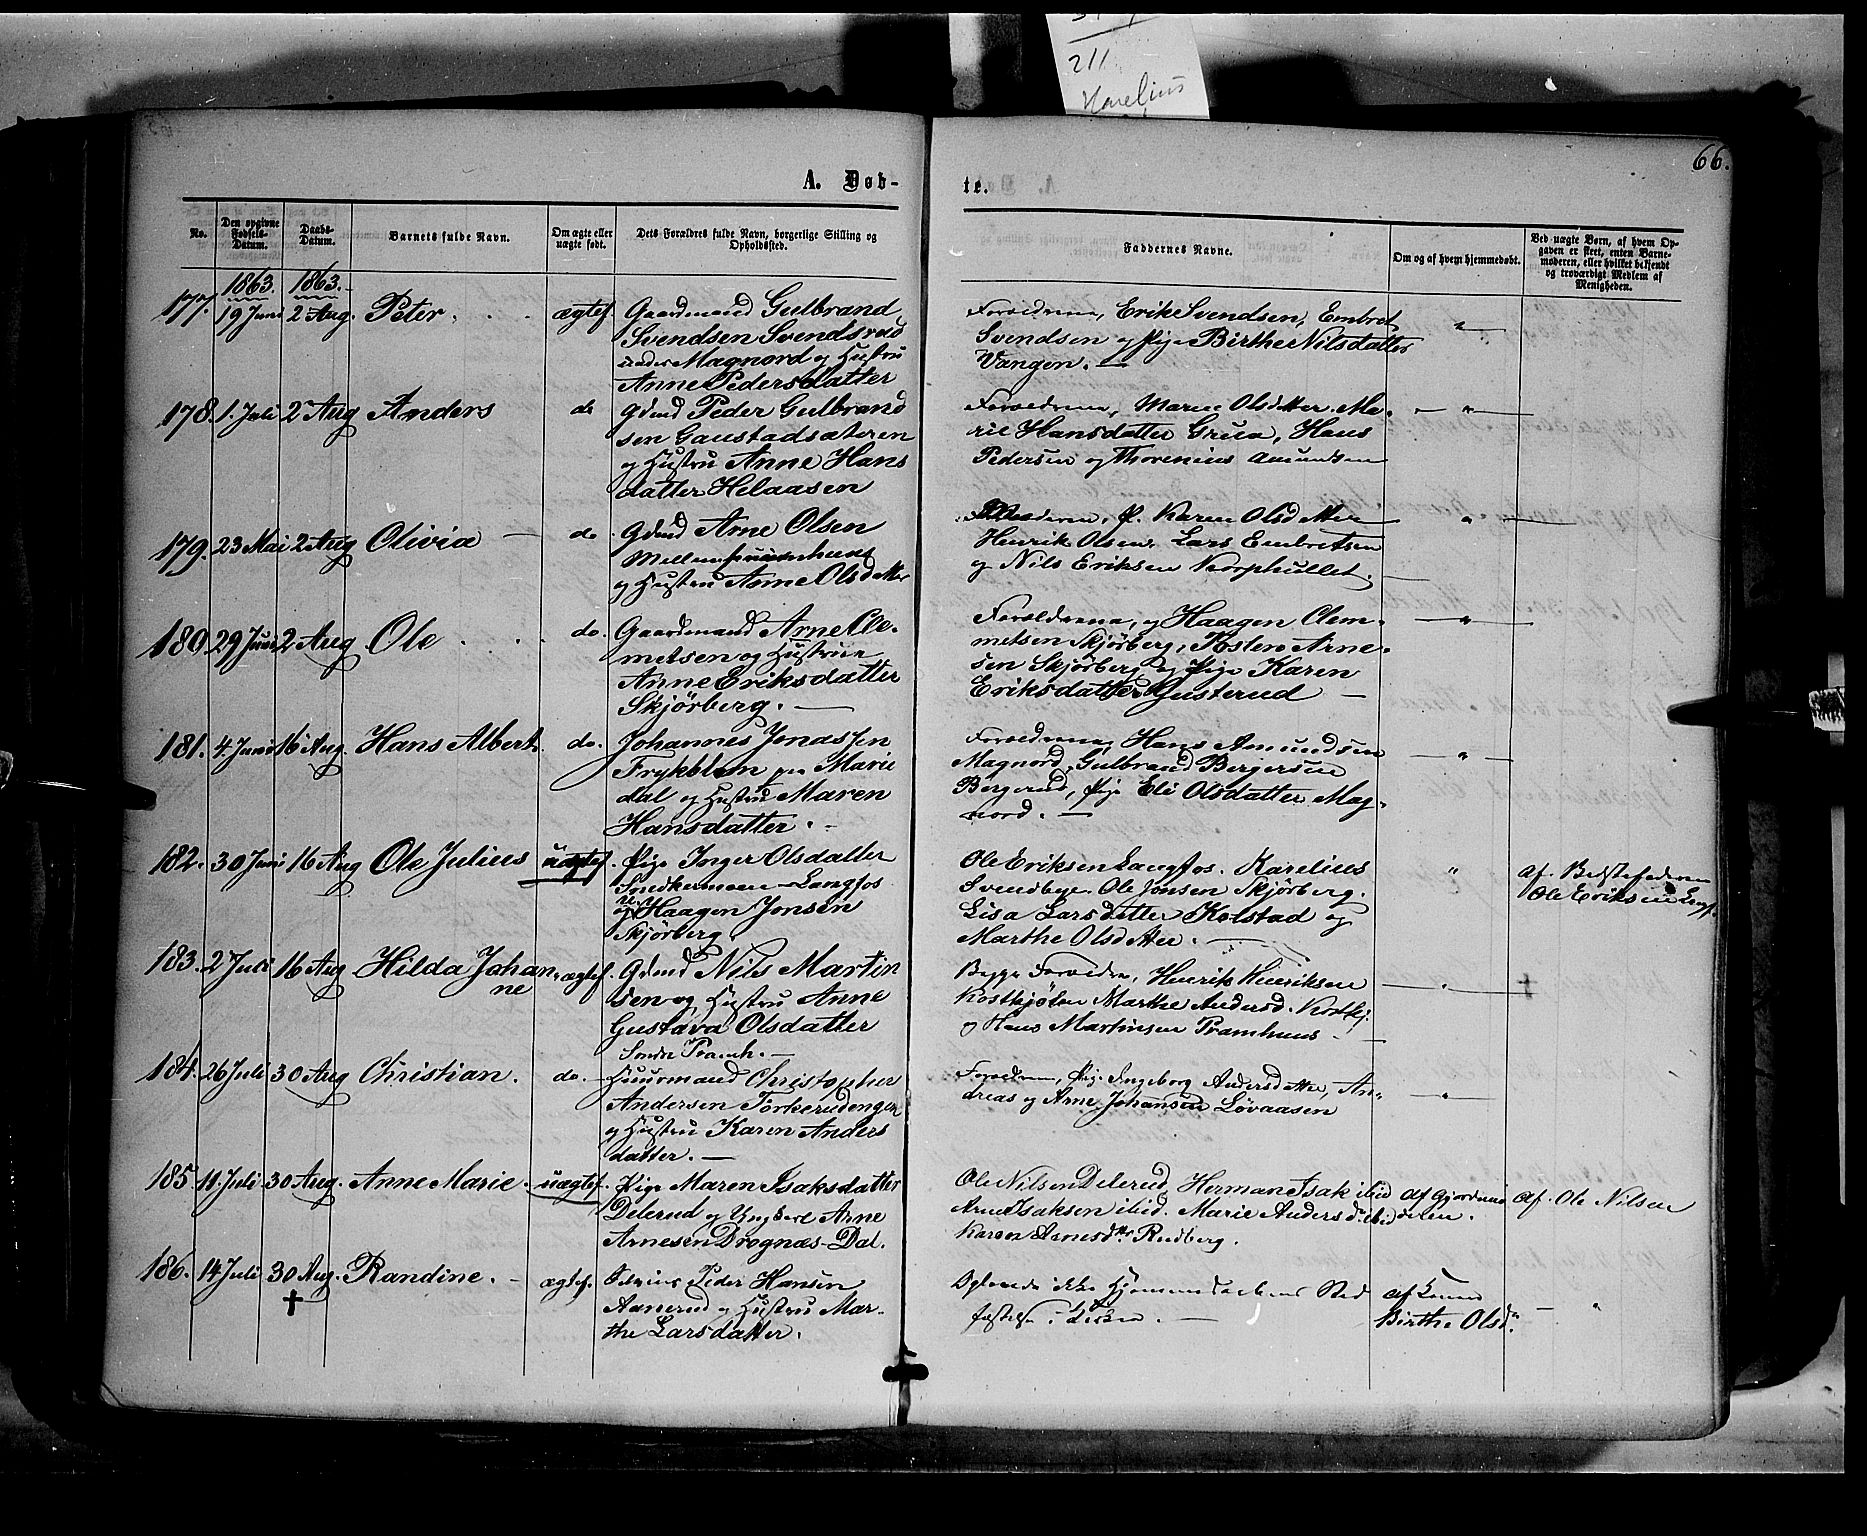 211
Karelius
66.
A. Døb-
te.
No.
Den opgivne Fødsels-Datum.
Daabs-Datum.
Barnets fulde Navn.
Om ægte eller uægte født.
Dets Forældres fulde Navn, borgerlige Stilling og Opholdssted.
Faddernes Navne.
Om og af hvem hjemmedøbt.
Ved uægte Børn, af hvem Opgaven er skeet, enten Barnemoderen, eller hvilket bekjendt og troværdigt Medlem af Menigheden.
1863. 1863.
177. 19 Juni 2 Aug. Peter ægtef. Gaardmand Gulbrand
Svendsen Svendsrud
under Magnord og Hustru
Anne Pedersdatter
Forældrene, Erik Svendsen, Embret
Svendsen og Pige Birthe Nilsdatter
Vangen.
178. 1. Juli 2 Aug Anders do Gdmd Peder Gulbrand
sen Gaustadsæteren
og Hustru Anne Hans
datter Helaasen
Forældrene, Maren Olsdatter, Ma-
rie Hansdatter Grua, Hans
Pedersen og Thorenius Amundsen
179. 23 Mai 2 Aug Olivia do. Gdmd Arne Olsen
og Hustru Anne Olsdatter
Forældrene, P. Karen Olsdatter
Henrik Olsen, Lars Embretsen
og Nils Eriksen Korphullet.
180 29 Juni 2 Aug Ole do. Gaardmand Arne Cle-
metsen og Hustru
Anne Eriksdatter
Skjørberg.
Forældrene, og Haagen Clem-
metsen Skjørberg, Kosten Arne-
sen Skjørberg og Pige Karen
Eriksdatter Gusterud
181. 4 Juni 16 Aug. Hans Albert. do. Johannes Jonassen
Frykblem paa Marie
dal og Hustru Maren
Hansdatter.
Forældrene, Hans Amundsen
Magnord, Gulbrand Bergersen
Bergerud, Pige Eli Olsdatter Mag-
nord.
182. 30 Juni 16 Aug Ole Julius uægtef. Pige Inger Olsdatter
Langfos
og Haagen Jonsen
Skjørberg.
Ole Eriksen Langfos. Karelius
Svendbye. Ole Jonsen Skjørberg.
Lisa Larsdatter Kolstad og
Marthe Olsdatter.
af Bedstefaderen
Ole Eriksen Langf.
183. 2 Juli 16 Aug Hilda Johan
ne ægtef. Gdmd Nils Martin
sen og Hustru Anne
Gustava Olsdatter
Søndre Pramh.
Begge Forældre, Henrik Henriksen
Kostkjølen Marthe Andersd. Kostkj.
og Hans Martinsen Pramhuus
184. 26 Juli 30 Aug Christian. do. Huusmand Christopher
Andersen Torkerudengen
og Hustru Karen Anders
datter.
Forældrene, Pige Ingeborg Andersdatter, An-
dreas og Arne Johansen Løvaasen
185 11. Juli 30 Aug. Anne Marie uægtef. Pige Maren Isaksdatter
Delerud og Ungkarl Arne
Arnesen Drognæs-Dal.
Ole Nilsen Delerud, Herman Isak ibid
Arne Isaksen ibid. Marie Andersd. ibid
Karen Arnesdtr Rudberg.
af Gjordmod
eren.
af. Ole Nilsen
186. 14 Juli 30 Aug. Randine. ægtef. Peder Hansen
Aanerud og Hustru Mar-
the Larsdatter.
ikke Hjemmedaabens Stad
fæstelse i Kirken.
af Konen
Birthe Olsd.